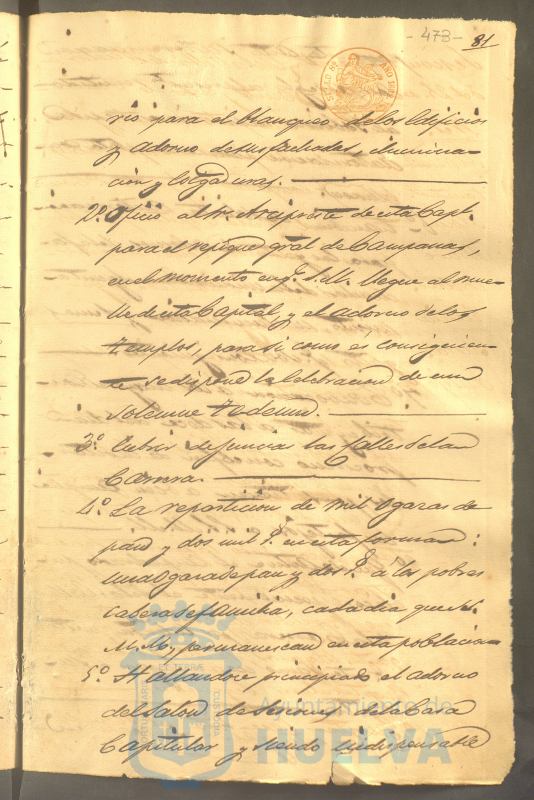 - 473 - 81
rio para el blanqueo de los Edificios
y adorno de sus fachadas, ilumina-
cion y colgaduras.
2º Oficio al Sr. Arcipreste de esta Capl.
para el repique gral de Campanas,
en el momento en q.e S.M. llegue al mue-
lle de esta Capital, y el adorno de los
templos, para si como es consiguien-
te se dispone la celebracion de un
solemne Te deum.
3º Cubrir de las Calles de la
Carrera.
4º La reparticion de mil ogazas de
pan y dos mil r.s en esta forma:
una ogaza de pan y dos r.s á los pobres
cabeza de familia, cada dia que S.S.
M.M. permanescan en esta poblacion
5º Hallandose principiado el adorno
del Salon de Sesiones de la Casa
Capitular y siendo indispensable
Ayuntamiento de
HUELVA